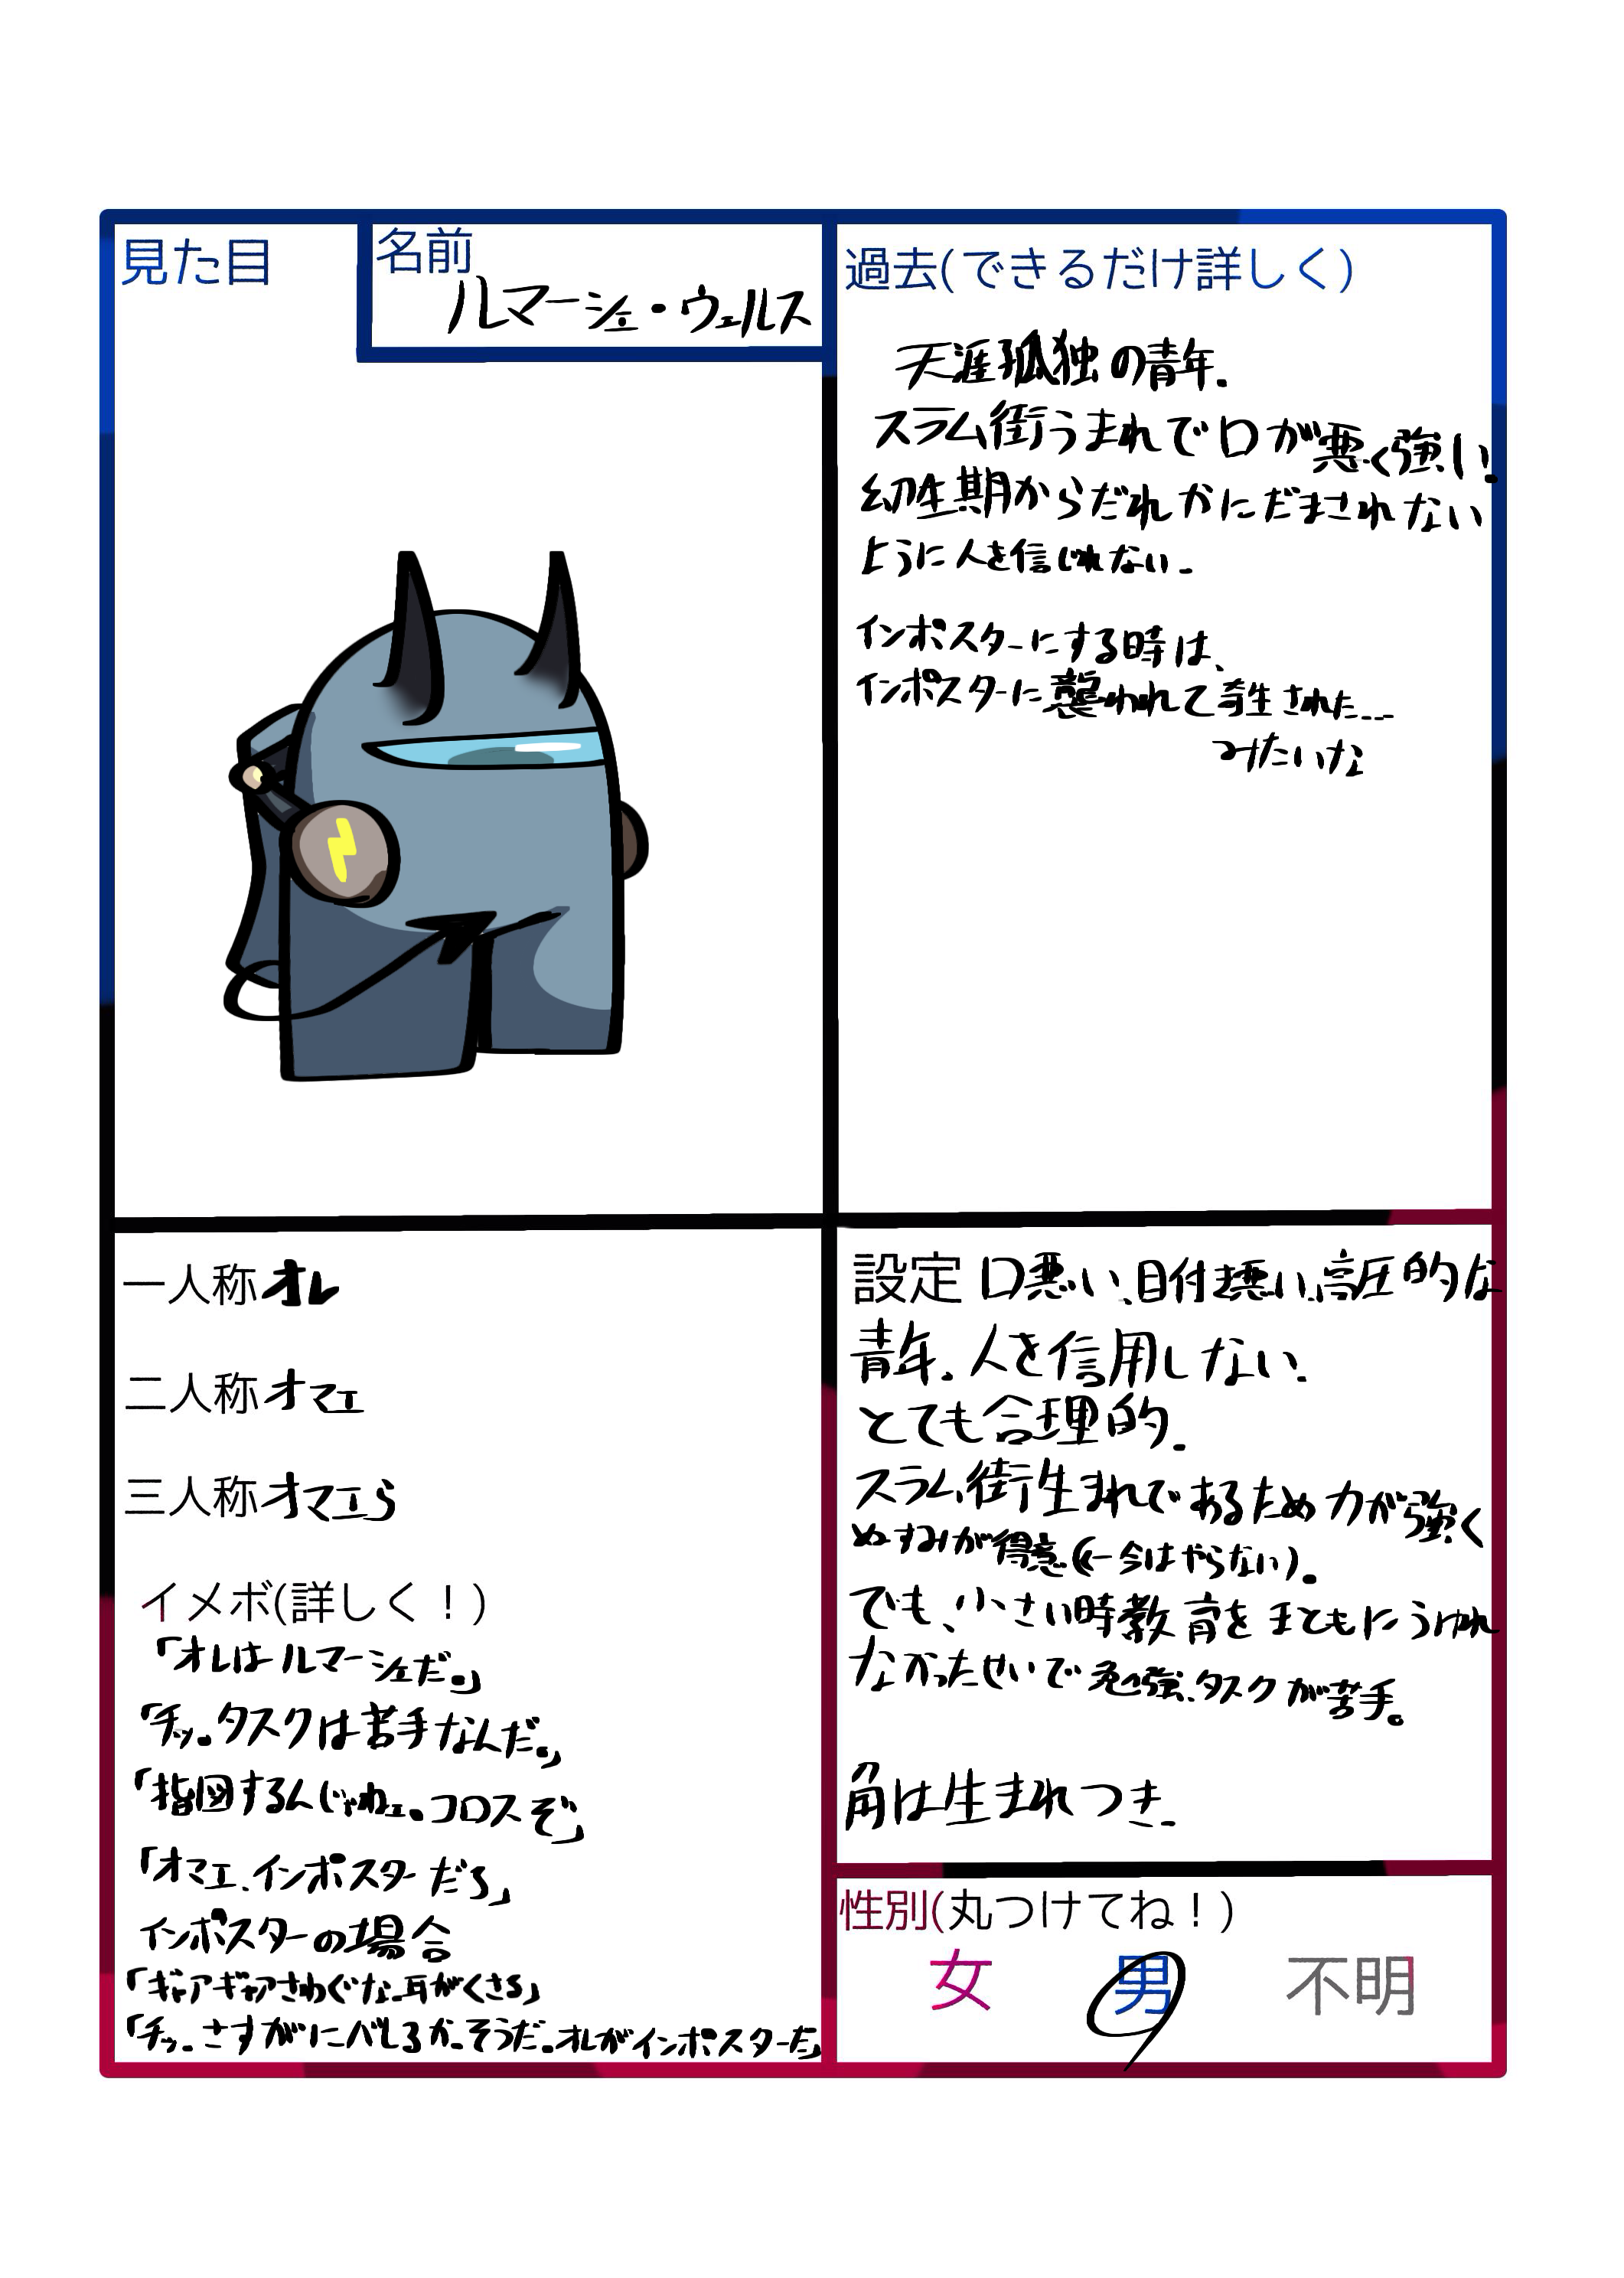 見た目
名前
ルマーシェ・ウェルス
過去(できるだけ詳しく)
天涯孤独の青年.
スラム街うまれで口が悪く強い.
幼生期からだれかにだまされない
ように人を信じれない.
インポスターにする時は、
インポスターに襲われて寄生された...
みたいな
一人称 オレ
二人称 オマエ
三人称 オマエら
イメボ(詳しく!)
「オレはルマーシェだ。」
「チッ。タスクは苦手なんだ。」
「指図するんじゃねェ。コロスぞ」
「オマエ、インポスターだろ」
インポスターの場合
「ギャアギャアさわぐな、耳がくさる」
「チッ。さすがにバレるか。そうだ。オレがインポスターだ」
設定 口悪い、目付き悪い、高圧的な
青年.人を信用しない.
とても合理的.
スラム街生まれであるため力が強く
ぬすみが得意(←今はやらない)。
でも、小さい時教育をまともにうけれ
なかったせいで勉強、タスクが苦手。
角は生まれつき.
性別(丸つけてね!)
女 男 不明